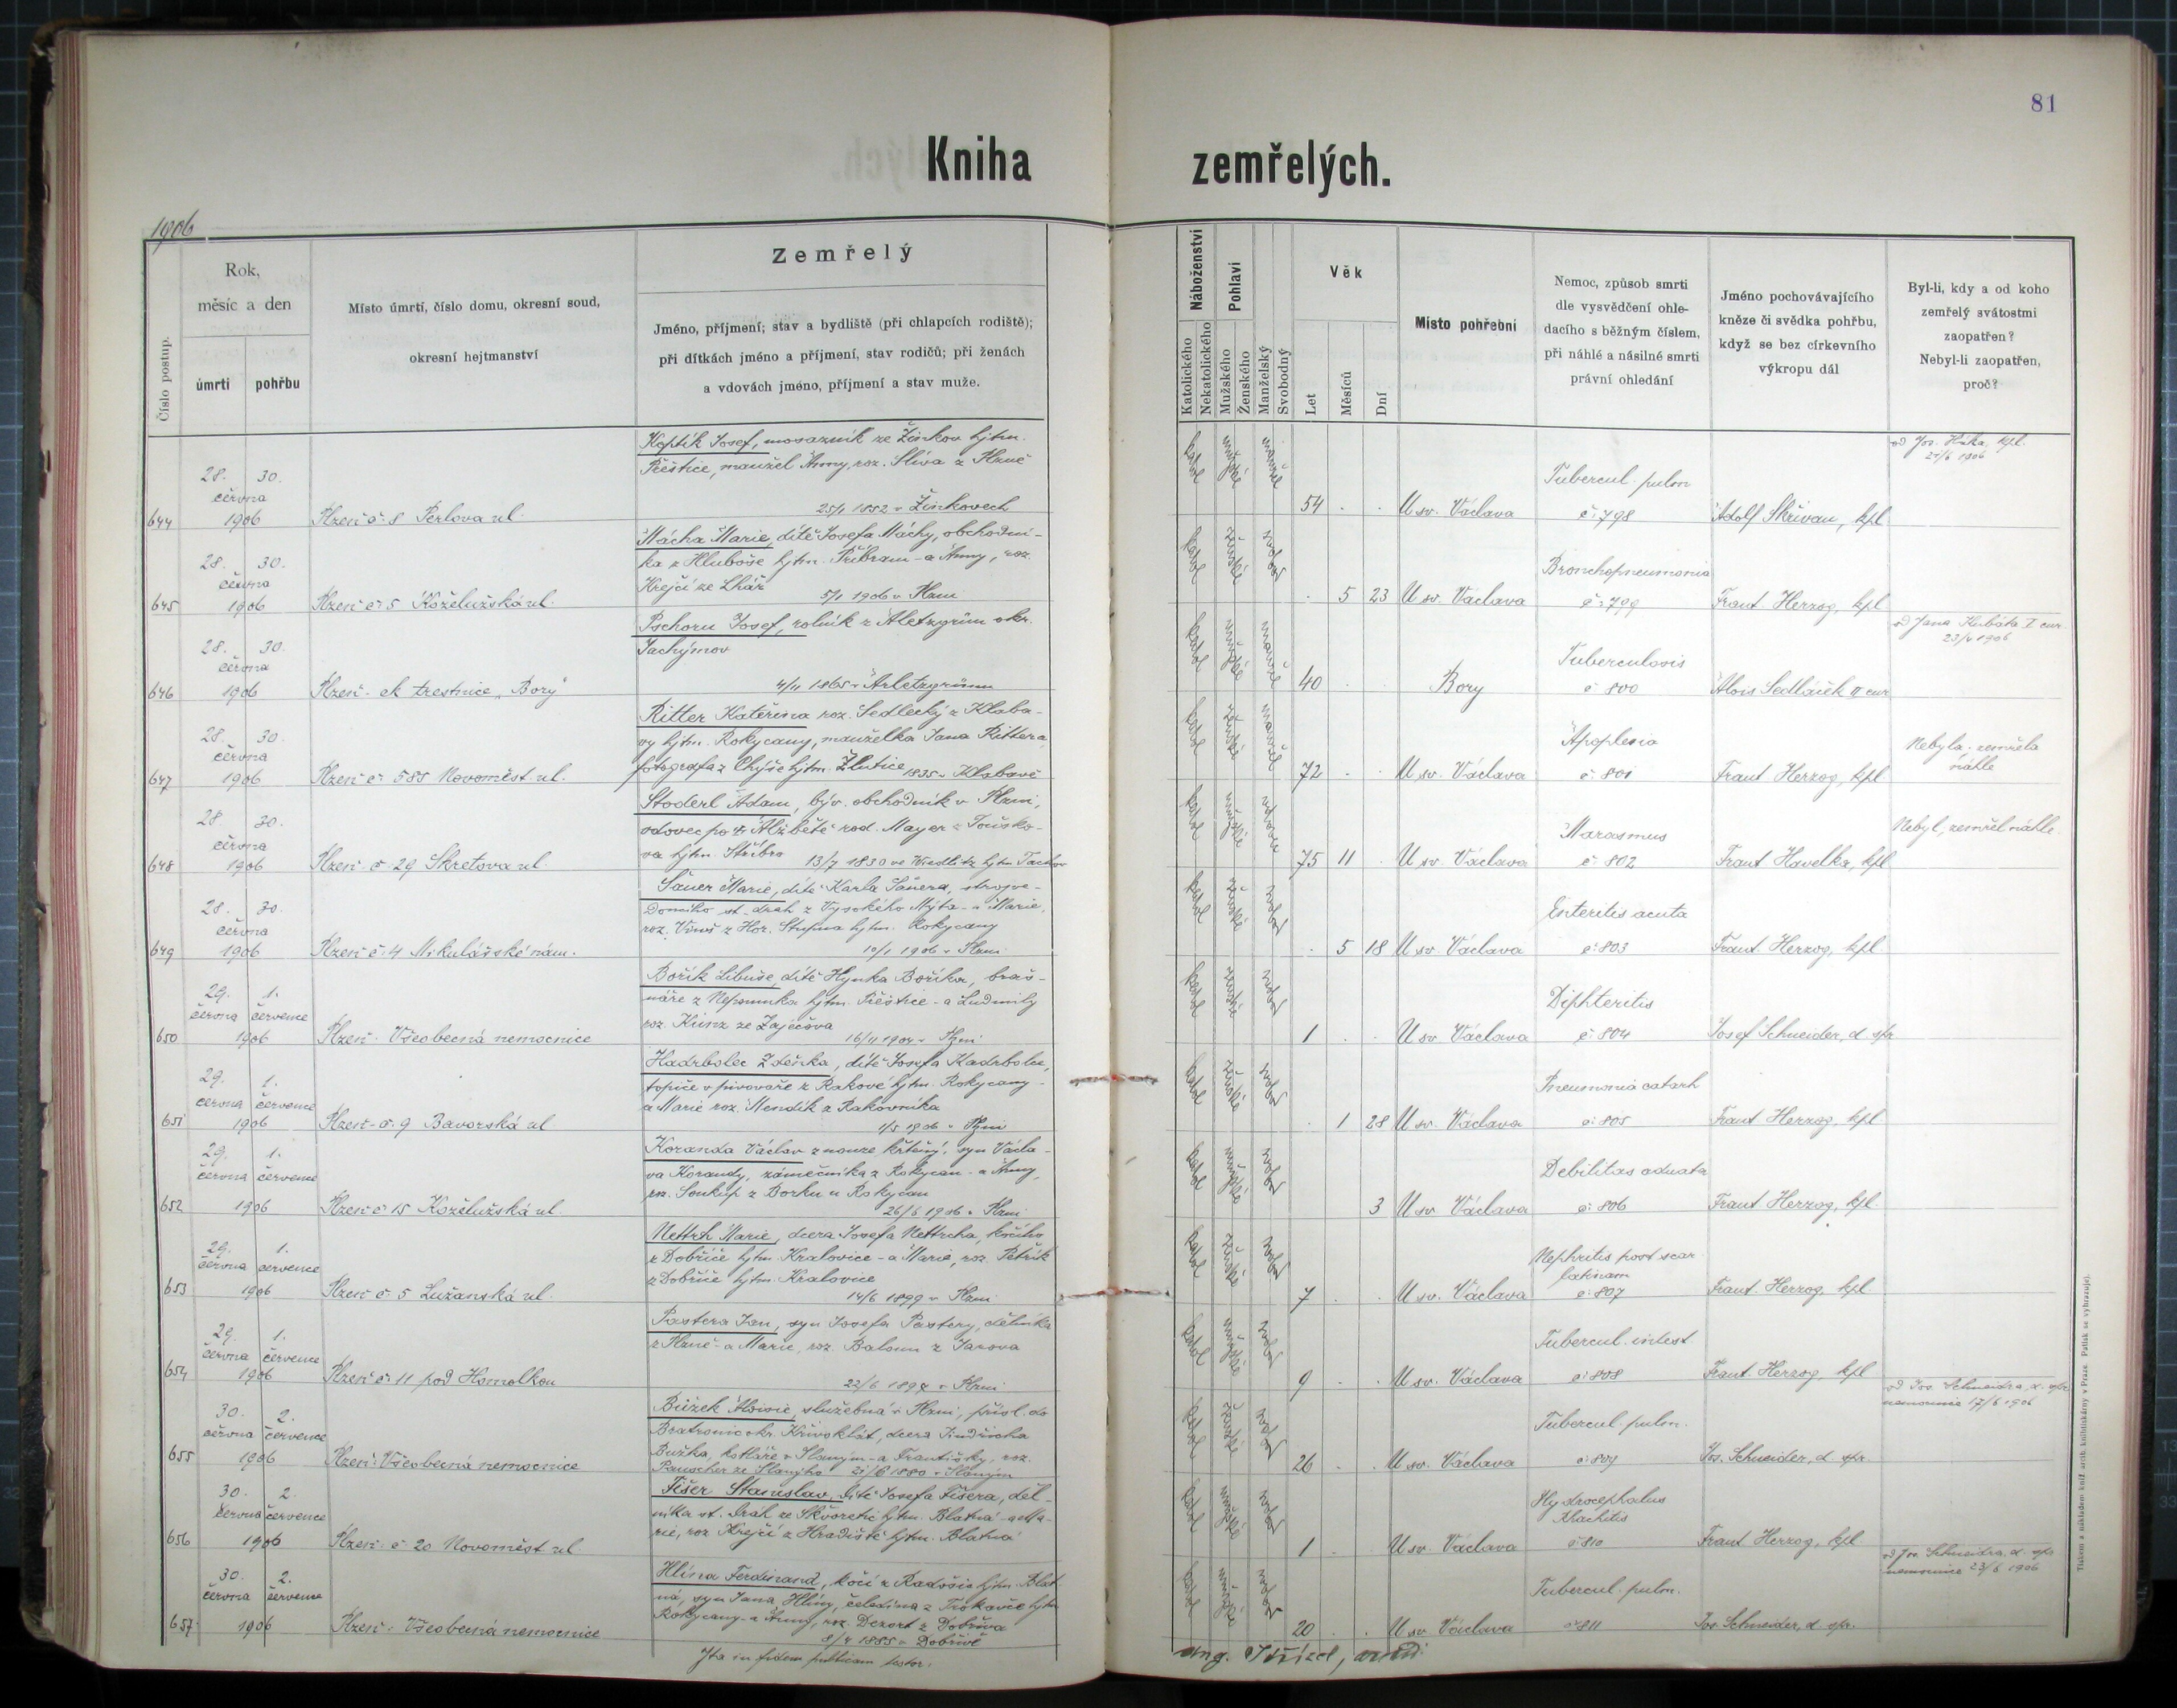 81
Kniha zemřelých.
1906
Číslo postup.
Rok,
měsíc a den
úmrtí
pohřbu
Místo úmrtí, číslo domu, okresní soud,
okresní hejtmanství
Zemřelý
Jméno, příjmení; stav a bydliště (při chlapcích rodiště);
při dítkách jméno a příjmení, stav rodičů; při ženách
a vdovách jméno, příjmení a stav muže.
Náboženství
Katolického
Nekatolického
Pohlaví
Mužského
Ženského
Manželský
Svobodný
Věk
Let
Měsíců
Dní
Místo pohřební
Nemoc, způsob smrti
dle vysvědčení ohle-
dacího s běžným číslem,
při náhlé a násilné smrti
právní ohledání
Jméno pochovávajícího
kněze či svědka pohřbu,
když se bez církevního
výkropu dál
Byl-li, kdy a od koho
zemřelý svátostmi
zaopatřen?
Nebyl-li zaopatřen,
proč?
644
28. 30.
června
1906
Plzeň č. 8 Perlova ul.
Koptík Josef, mosazník ze Žinkov hjtm.
Přeštice, manžel Anny, roz. Slíva z Plzně
25/1 1852 v Žinkovech
54
U sv. Václava
Tubercul. pulm
č. 798
Adolf Skřivan, kpl
od Jos. Huka, kpl.
21/6 1906
645
28. 30.
června
1906
Plzeň č. 5 Koželužská ul.
Mácha Marie, dítě Josefa Máchy, obchodní-
ka z Hluboše hjtm. Příbram - a Anny, roz.
Krejčí ze Lhář
5/1 1906 v Plzni
5 23
U sv. Václava
Bronchopneumonia
č. 799
Frant. Herzog, kpl
646
28. 30.
června
1906
Plzeň - ck trestnice "Bory"
Pschorn Josef, rolník z Aletzgrün okr.
Jáchymov
4/11 1865 v Arletzgrünu
40
Bory
Tuberculosis
č. 800
Alois Sedláček II cur
od Jana Kubáta I cur.
23/4 1906
647
28. 30.
června
1906
Plzeň č. 585 Novoměst. ul.
Ritter Kateřina roz. Sedlecký z Klaba-
vy hjtm. Rokycany, manželka Jana Rittera,
fotografa z Chýše hjtm. Žlutice 1835 v Klabavě
72
U sv. Václava
Apoplexia
č. 801
Frant Herzog, kpl
Nebyla, zemřela
náhle
648
28 30.
června
1906
Plzeň č. 29 Skretova ul.
Stoderl Adam, býv. obchodník v Plzni,
vdovec po Alžbětě rod. Mayer z Touško-
va hjtm. Stříbro 13/7 1830 ve Wiedlitz hjtm Tachov
75 11
U sv. Václava
Marasmus
č. 802
Frant Havelka, kpl
Nebyl, zemřel náhle.
649
28. 30.
června
1906
Plzeň č. 4 Mikulášské nám.
Šauer Marie, dítě Karla Šauera, strojve-
doucího st. drah z Vysokého Mýta - a Marie,
roz. Vinš z Hor. Stupna hjtm. Rokycany
10/1 1906 v Plzni
5 18
U sv. Václava
Enteritis acuta
č. 803
Frant. Herzog, kpl.
650
29. 1.
června července
1906
Plzeň - Všeobecná nemocnice
Bořík Libuše, dítě Hynka Boříka, braš-
náře z Nepomuka hjtm. Přeštice - a Ludmily
roz. Künz ze Zaječova
16/11 1904 v Plzni
1
U sv. Václava
Diphteritis
č. 804
Josef Schneider, d. spr
651
29. 1.
června července
1906
Plzeň - č. 9 Bavorská ul
Hadrbolec Zdeňka, dítě Josefa Hadrbolce,
topiče v pivovaře z Rakové hjtm. Rokycany -
a Marie roz. Mendík z Rakovníka
1/5 1906 v Plzni
1 28
U sv. Václava
Pneumonia catarh
č. 805
Frant Herzog, kpl
652
29. 1.
června července
1906
Plzeň č. 15 Koželužská ul.
Koranda Václav z nouze křtěný, syn Václa-
va Korandy, zámečníka z Rokycan - a Anny,
roz. Soukup z Borku u Rokycan
26/6 1906 v Plzni
3
U sv Václava
Debilitas adnata
č. 806
Frant Herzog, kpl.
653
29. 1.
června července
1906
Plzeň č. 5 Lužanská ul.
Nettrh Marie, dcera Josefa Nettrcha, kočího
z Dobříče hjtm. Kralovice - a Marie, roz. Petřík
z Dobříče hjtm. Kralovice
14/6 1899 v Plzni
7
U sv. Václava
Nephritis post scar-
latinam
č. 807
Frant. Herzog, kpl
654
29. 1.
června července
1906
Plzeň č. 11 pod Homolkou
Pastera Jan, syn Josefa Pastery, dělníka
z Plzně - a Marie, roz. Baloun z Janova
9
U sv. Václava
Tubercul. intest
č. 808
Frant. Herzog, kpl
655
30. 2.
června července
1906
Plzeň: Všeobecná nemocnice
Bůžek Aloisie, služebná v Plzni, přísl. do
Bratronic okr. Křivoklát, dcera Jindřicha
Bužka, kotláře v Slaným - a Františky, roz.
Pauscher ze Slaného 21/6 1880 v Slaným
26
U sv. Václava
Tubercul. pulm.
č. 809
Jos. Schneider, d. spr.
od Jos. Schneidra, d. spr
nemocnice 17/6 1906
656
30. 2.
června července
1906
Plzeň - č. 20 Novoměst ul.
Fišer Stanislav, dítě Josefa Fišera, děl-
níka st. drah ze Škvoretic hjtm. Blatná - a Ma-
rie, roz Krejčí z Hradiště hjtm. Blatná
1
U sv. Václava
Hydrocephalus
Rhachitis
č. 810
Frant Herzog, kpl.
657
30. 2.
června července
1906
Plzeň - Všeobecná nemocnice
Hlína Ferdinand, kočí z Radošic hjtm. Blat-
ná, syn Jana Hlíny, čeledína z Trokavce hjtm
Rokycany - a Anny, roz. Dezort z Dobříva
8/4 1885 v Dobřívě
20
U sv Václava
Tubercul. pulm.
č. 811
Jos. Schneider, d. spr.
od Jos. Schneidra, d. spr
nemocnice 23/6 1906
Ita in fidem publicam testor: